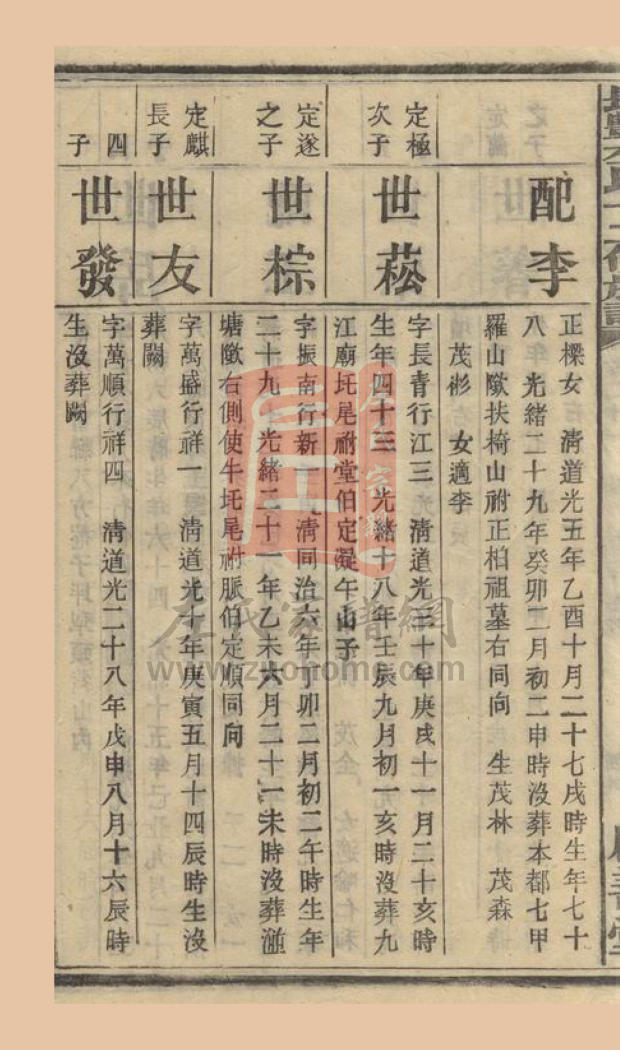 配李
正樑女 清道光五年乙酉十月二十七戌時生年七十
八年 光緒二十九年癸卯二月初二申時沒葬本都七甲
羅山歐扶椅山祔正柏祖墓右同向 生茂林 茂森
茂彬 女適李
定極
次子
世菘
字長青行江三 清道光三十年庚戌十一月二十亥時
生年四十三 光緒十八年壬辰九月初一亥時沒葬九
江廟圫尾祔堂伯定凝午山子
定遂
之子
世棕
字振南行新一 清同治六年丁卯二月初二午時生年
二十九 光緒二十一年乙未六月二十一未時沒葬
塘歐右側使牛圫尾祔脈伯定順同向
定麒
長子
世友
字萬盛行祥一 清道光十年庚寅五月十四辰時生沒
葬闕
四
子
世發
字萬順行祥四 清道光二十八年戊申八月十六辰時
生沒葬闕
左氏家譜網
www.zuonome.com